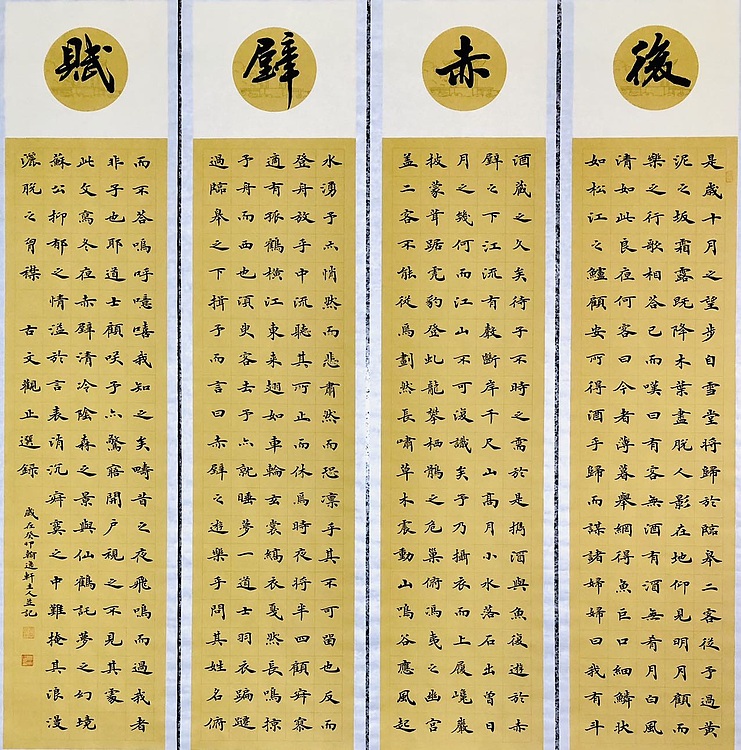 後
赤
壁
賦
是歲十月之望步自雪堂將歸於臨皋二客從予過黃
泥之坂霜露既降木葉盡脫人影在地仰見明月顧而
樂之行歌相答已而嘆曰有客無酒有酒無肴月白風
清如此良夜何客曰今者薄暮舉網得魚巨口細鱗狀
如松江之鱸顧安所得酒乎歸而謀諸婦婦曰我有斗
酒藏之久矣待子不時之需於是攜酒與魚復遊於赤
壁之下江流有聲斷岸千尺山高月小水落石出曾日
月之幾何而江山不可復識矣予乃攝衣而上履巉巖
披蒙茸踞虎豹登虬龍攀栖鶻之危巢俯馮夷之幽宮
蓋二客不能從焉劃然長嘯草木震動山鳴谷應風起
水湧予亦悄然而悲肅然而恐凜乎其不可留也反而
登舟放乎中流聽其所止而休焉時夜將半四顧寂寥
適有孤鶴橫江東來翅如車輪玄裳縞衣戛然長鳴掠
予舟而西也須臾客去予亦就睡夢一道士羽衣蹁躚
過臨皋之下揖予而言曰赤壁之遊樂乎問其姓名俯
而不答嗚呼噫嘻我知之矣疇昔之夜飛鳴而過我者
非子也耶道士顧笑予亦驚寤開戶視之不見其處
此文寫冬夜赤壁清冷陰森之景與仙鶴託夢之幻境
蘇公抑郁之情溢於言表消沉寂寞之中難掩其浪漫
灑脫之胸襟 古文觀止選錄
歲在癸卯翰逸軒主人並記